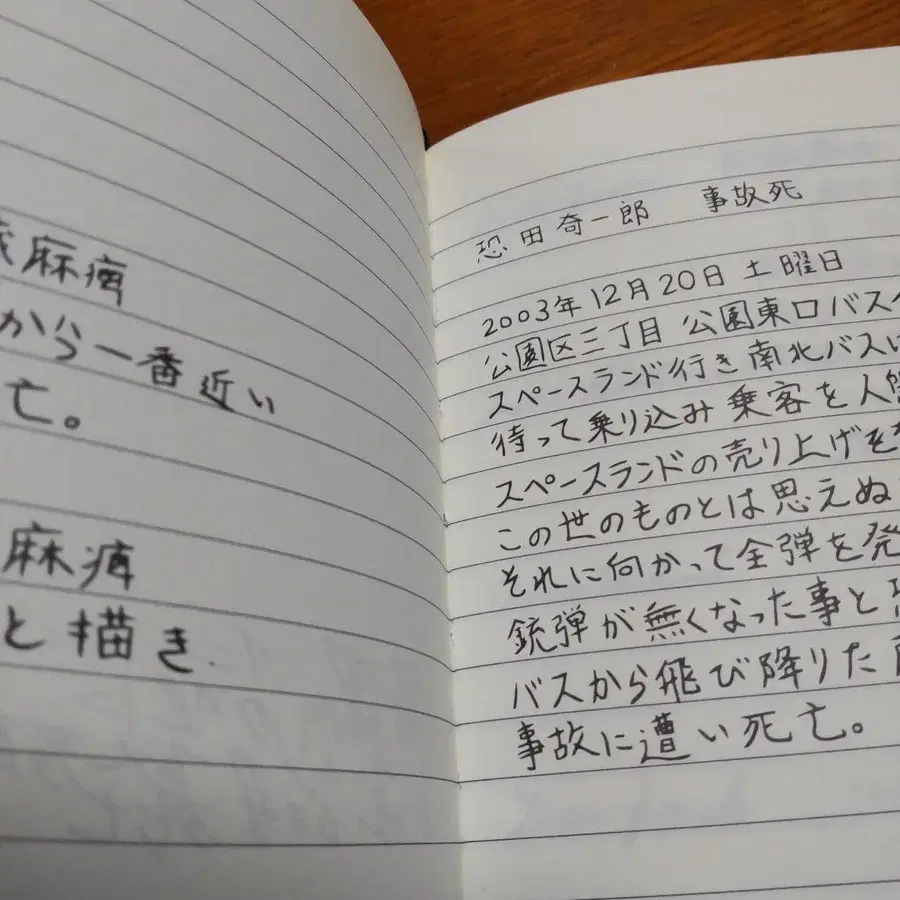 麻痺
から一番近い
亡。
麻痺
と描き
恐田奇一郎 事故死
2003年12月20日土曜日
公園区三丁目 公園東口バス
スペースランド行き南北バス
待って乗り込み乗客を人
スペースランドの売り上げを
この世のものとは思えぬ
それに向かって全弾を発
銃弾が無くなった事と
バスから飛び降りた
事故に遭い死亡。